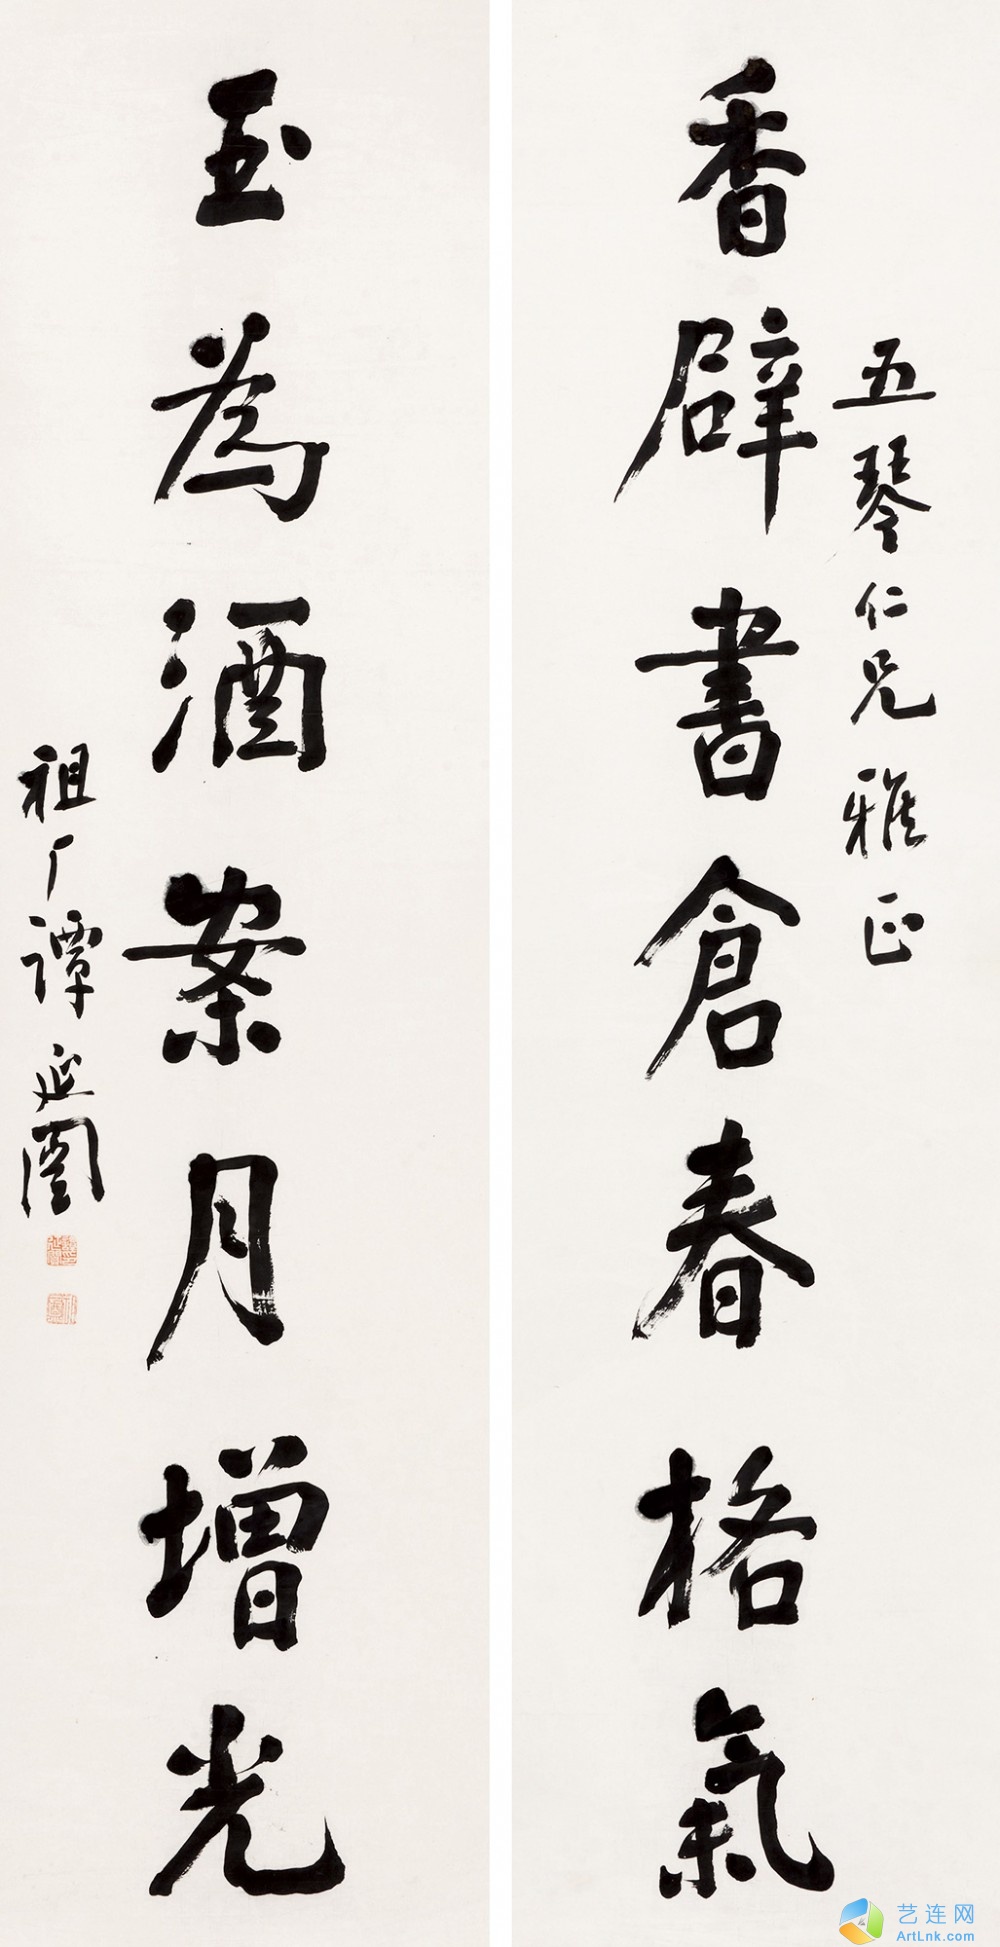 五琴仁兄雅正
香辟書倉春格氣
玉為酒案月增光
祖厂譚延闓
艺连网
ArtLnk.com